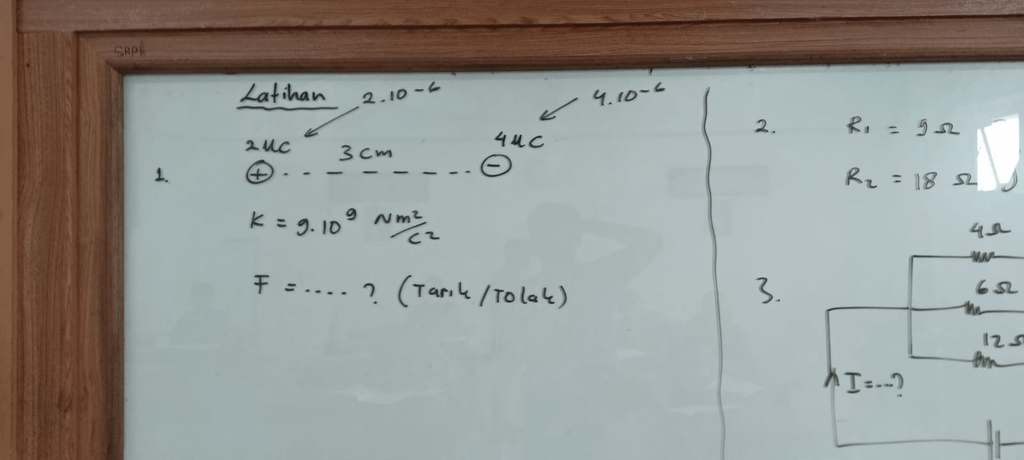 SRPK
Latihan
2.10-6
4.10-6
2µC
4µC
3 cm
1.
+
-
K = 9.10⁹ Nm²/C²
F = .... ? (Tarik/Tolak)
2.
R₁ = 9 Ω
R₂ = 18 Ω
3.
4Ω
6Ω
12Ω
I=...?